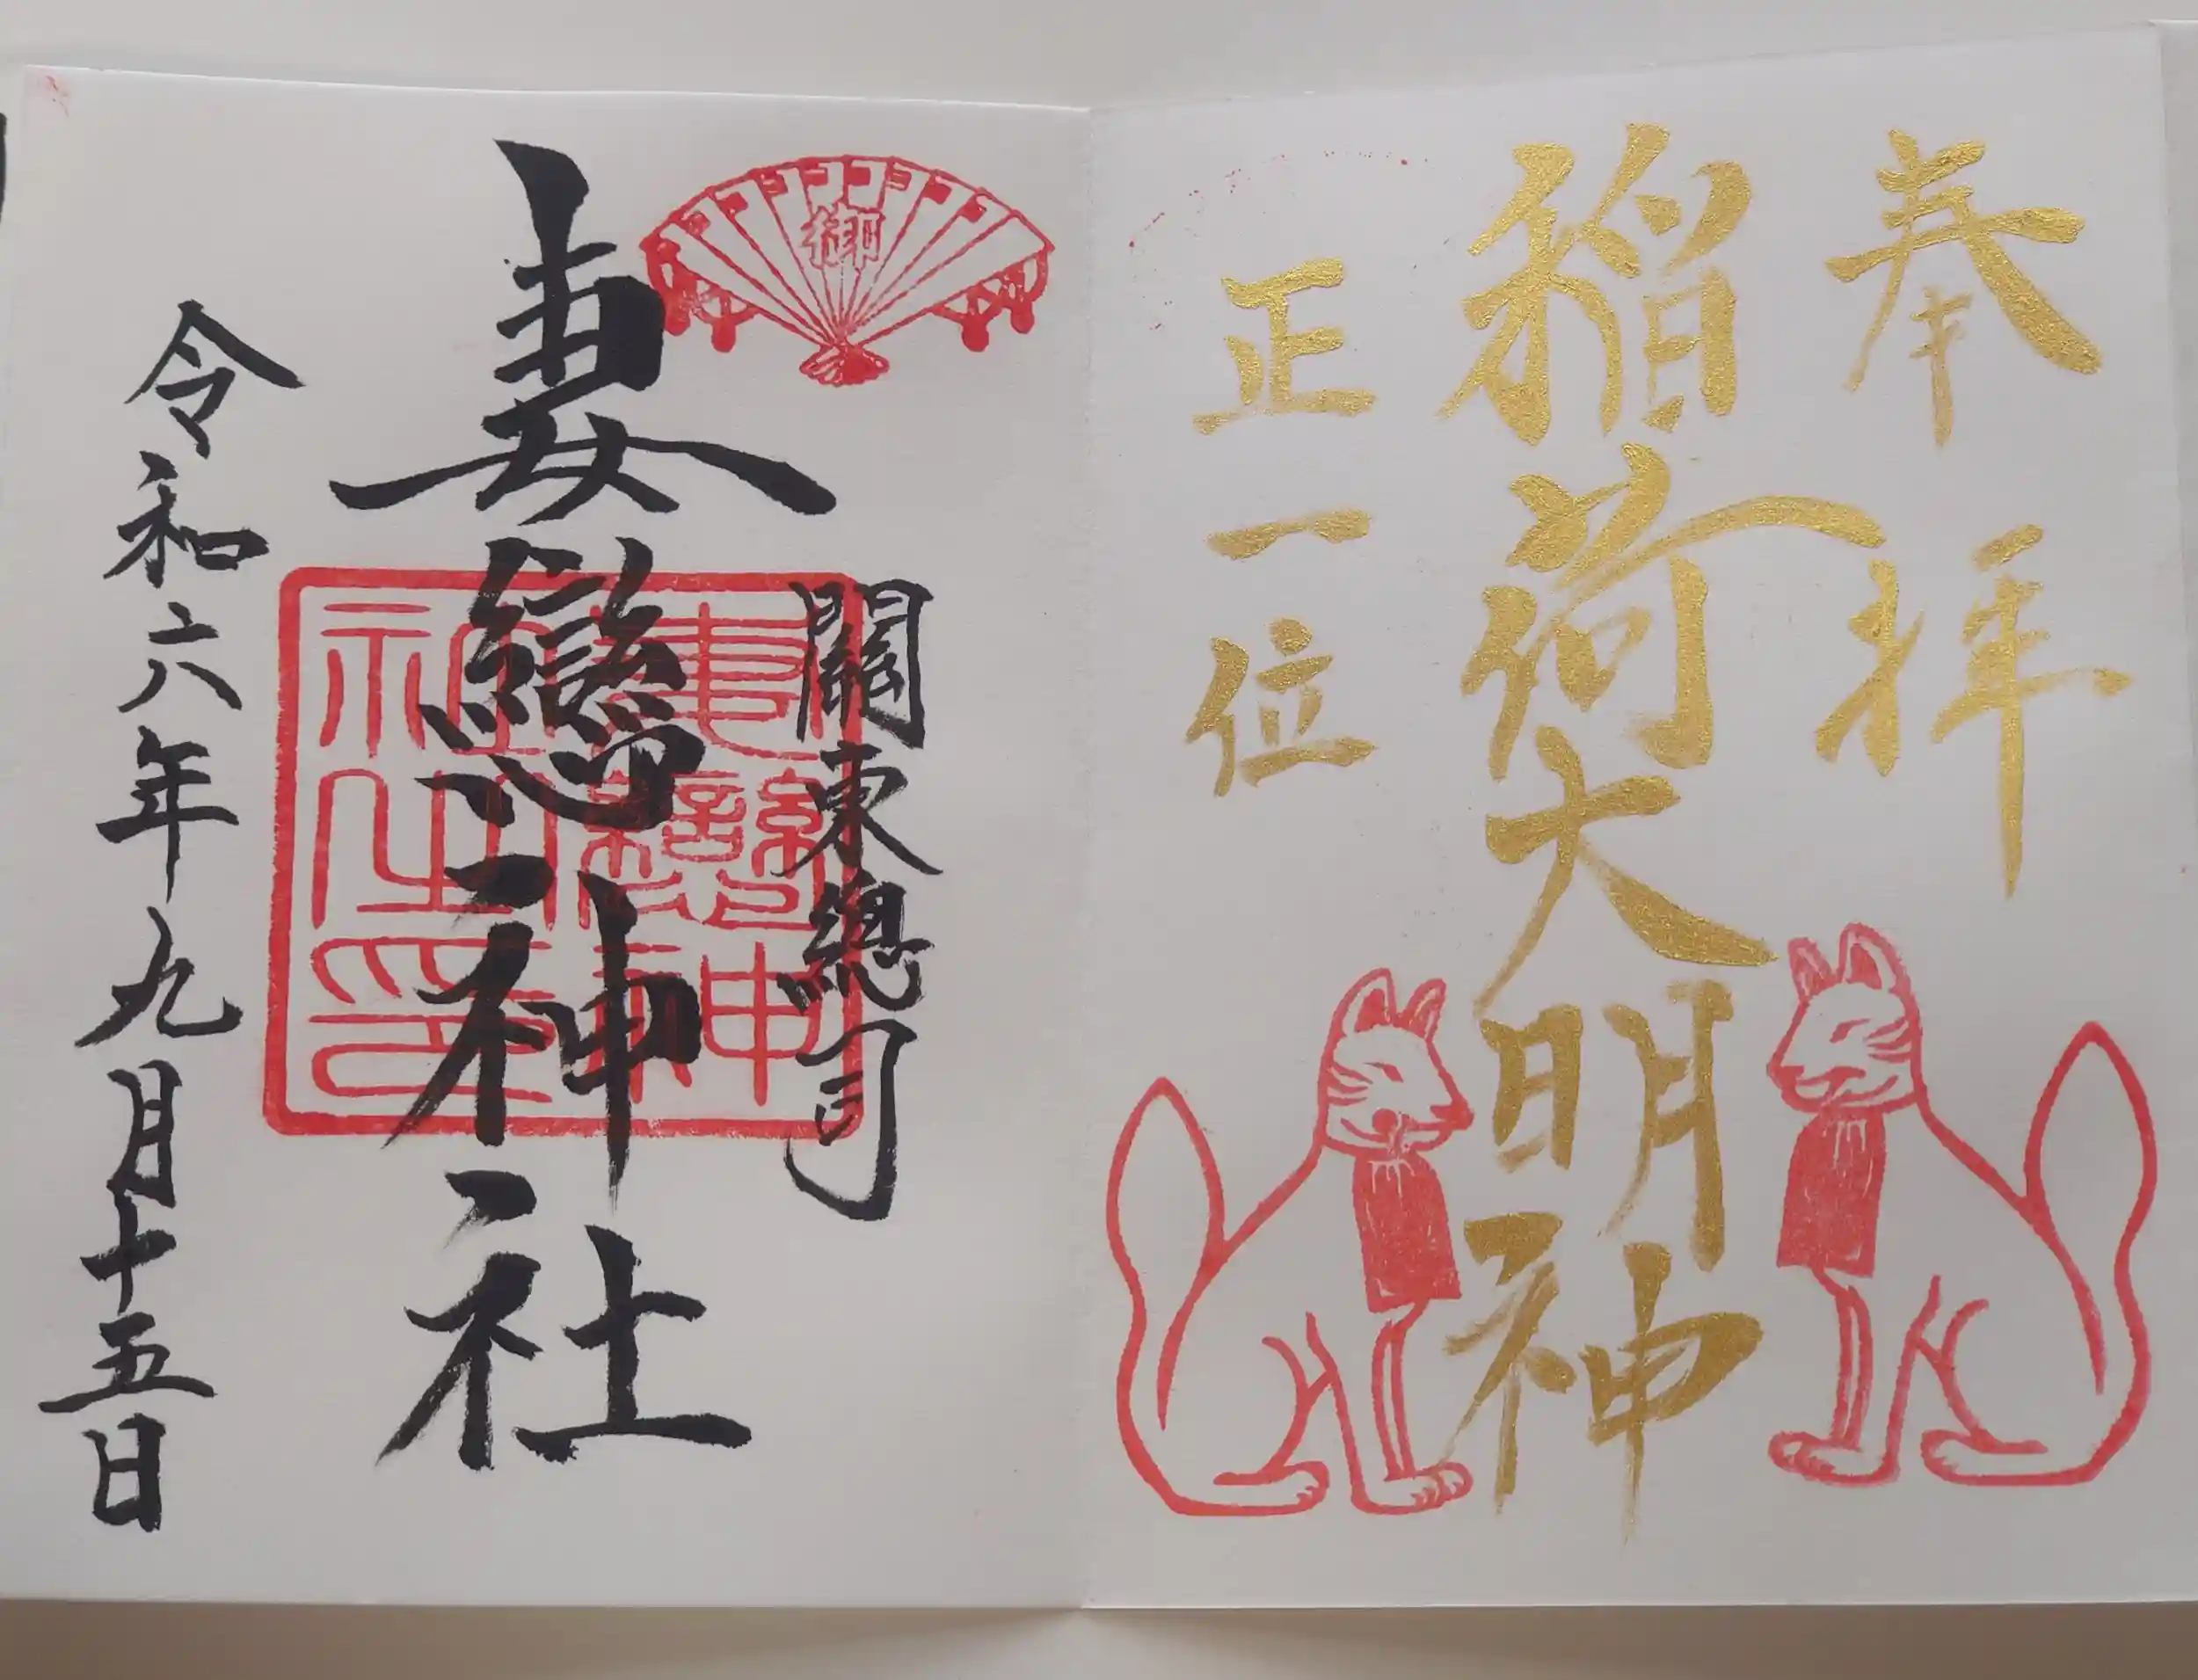 奉拝
稲荷大明神
正一位
御
關東總司
妻戀神社
妻戀神社之印
令和六年九月十五日